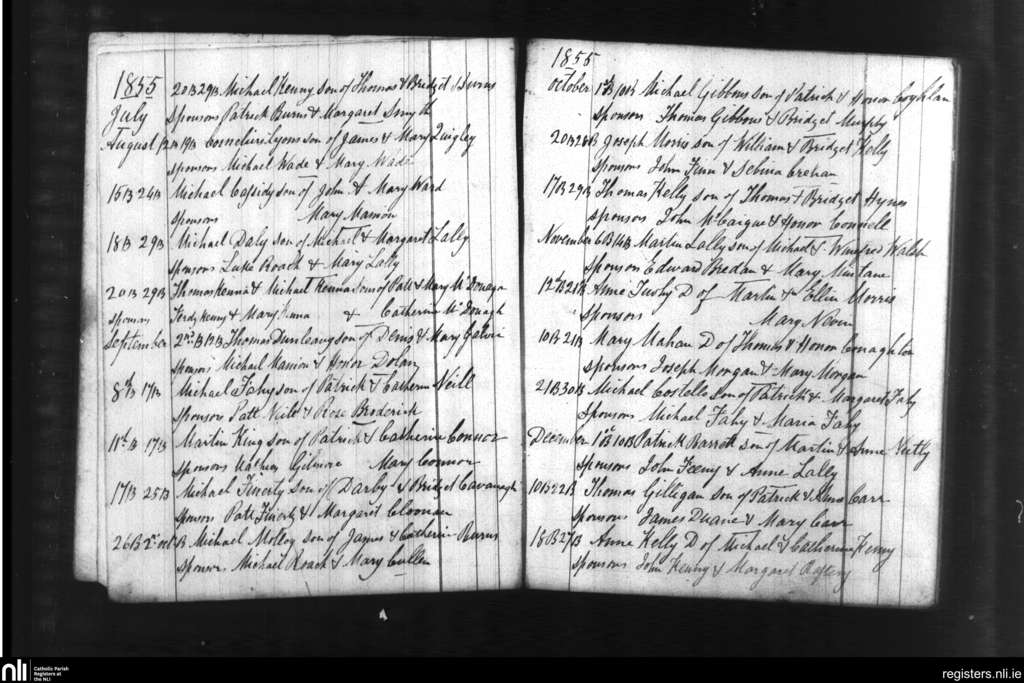 1855
July 20B 29B Michael Kenny son of Thomas & Bridget Burns
Sponsors Patrick Burns & Margaret Smyth
August 12B 19B Lyons son of James & Mary Quigley
Sponsors Michael Wade & Mary Wade
15B 24B Michael Casidy son of John & Mary Ward
Sponsors Mary Mannion
18B 29B Michael Daly son of Michael & Margaret Lally
Sponsors Luke Roach & Mary Lally
20B 29B Thomas Kenna & Michael Kenna sons of Patt & Mary McDonagh
Sponsors Ferdy Kenny & Mary & Catherine McDonagh
September 2nd B 17B Thomas Dunleavy son of Denis & Mary Galvin
Sponsors Michael Mannion & Honor Dolan
8th 17B Michael Fahy son of Patrick & Catherine Neill
Sponsors Patt Neill & Rose Broderick
11th B 17B Martin King son of Patrick & Catherine Connor
Sponsors Gilmore Mary Connor
17B 25B Michael Finerty son of Darby & Bridget Cavanagh
Sponsors Patt Finerty & Margaret Cloonan
26B 2nd oct B Michael Molloy son of James & Catherine Burns
Sponsors Michael Roach & Mary Cullen
1855
October 1st B 10B Michael Gibbons son of Patrick & Honor Coghlan
Sponsors Thomas Gibbons & Bridget Murphy
20B 26B Joseph Morris son of William & Bridget Kelly
Sponsors John Finn & Sebina Crehan
17B 29B Thomas Kelly son of Thomas & Bridget Hynes
Sponsors John McCaigue & Honor Connell
November 6B 14B Martin Lally son of Michael & Winefred Walsh
Sponsors Edward Bredan & Mary
12th B 21B Anne D of Martin & Ellen Morris
Sponsors Mary Neven
10B 21B Mary Mahan D of Thomas & Honor Conaghton
Sponsors Joseph Morgan & Mary Morgan
21B 30B Michael Costello son of Patrick & Margaret Fahy
Sponsors Michael Fahy & Maria Fahy
December 1st B 10B Patrick Barrett son of Martin & Anne
Sponsors John Feeny & Anne Lally
10B 22B Thomas Gilligan son of Patrick & Carr
Sponsors James Duane & Mary Carr
18B 27B Anne Kelly D of Michael & Catherine Kenny
Sponsors John Kenny & Margaret Rafery
nli Catholic Parish
Registers at
the NLI
registers.nli.ie